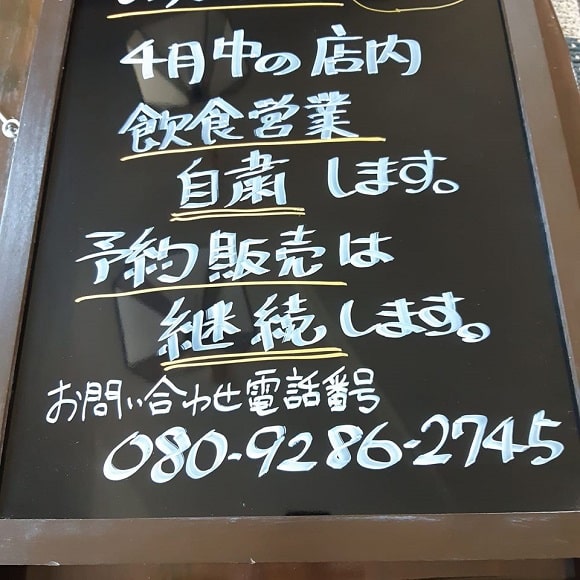 4月中の店内
飲食営業
自粛します。
予約販売は
継続します。
お問い合わせ電話番号
080-9286-2745